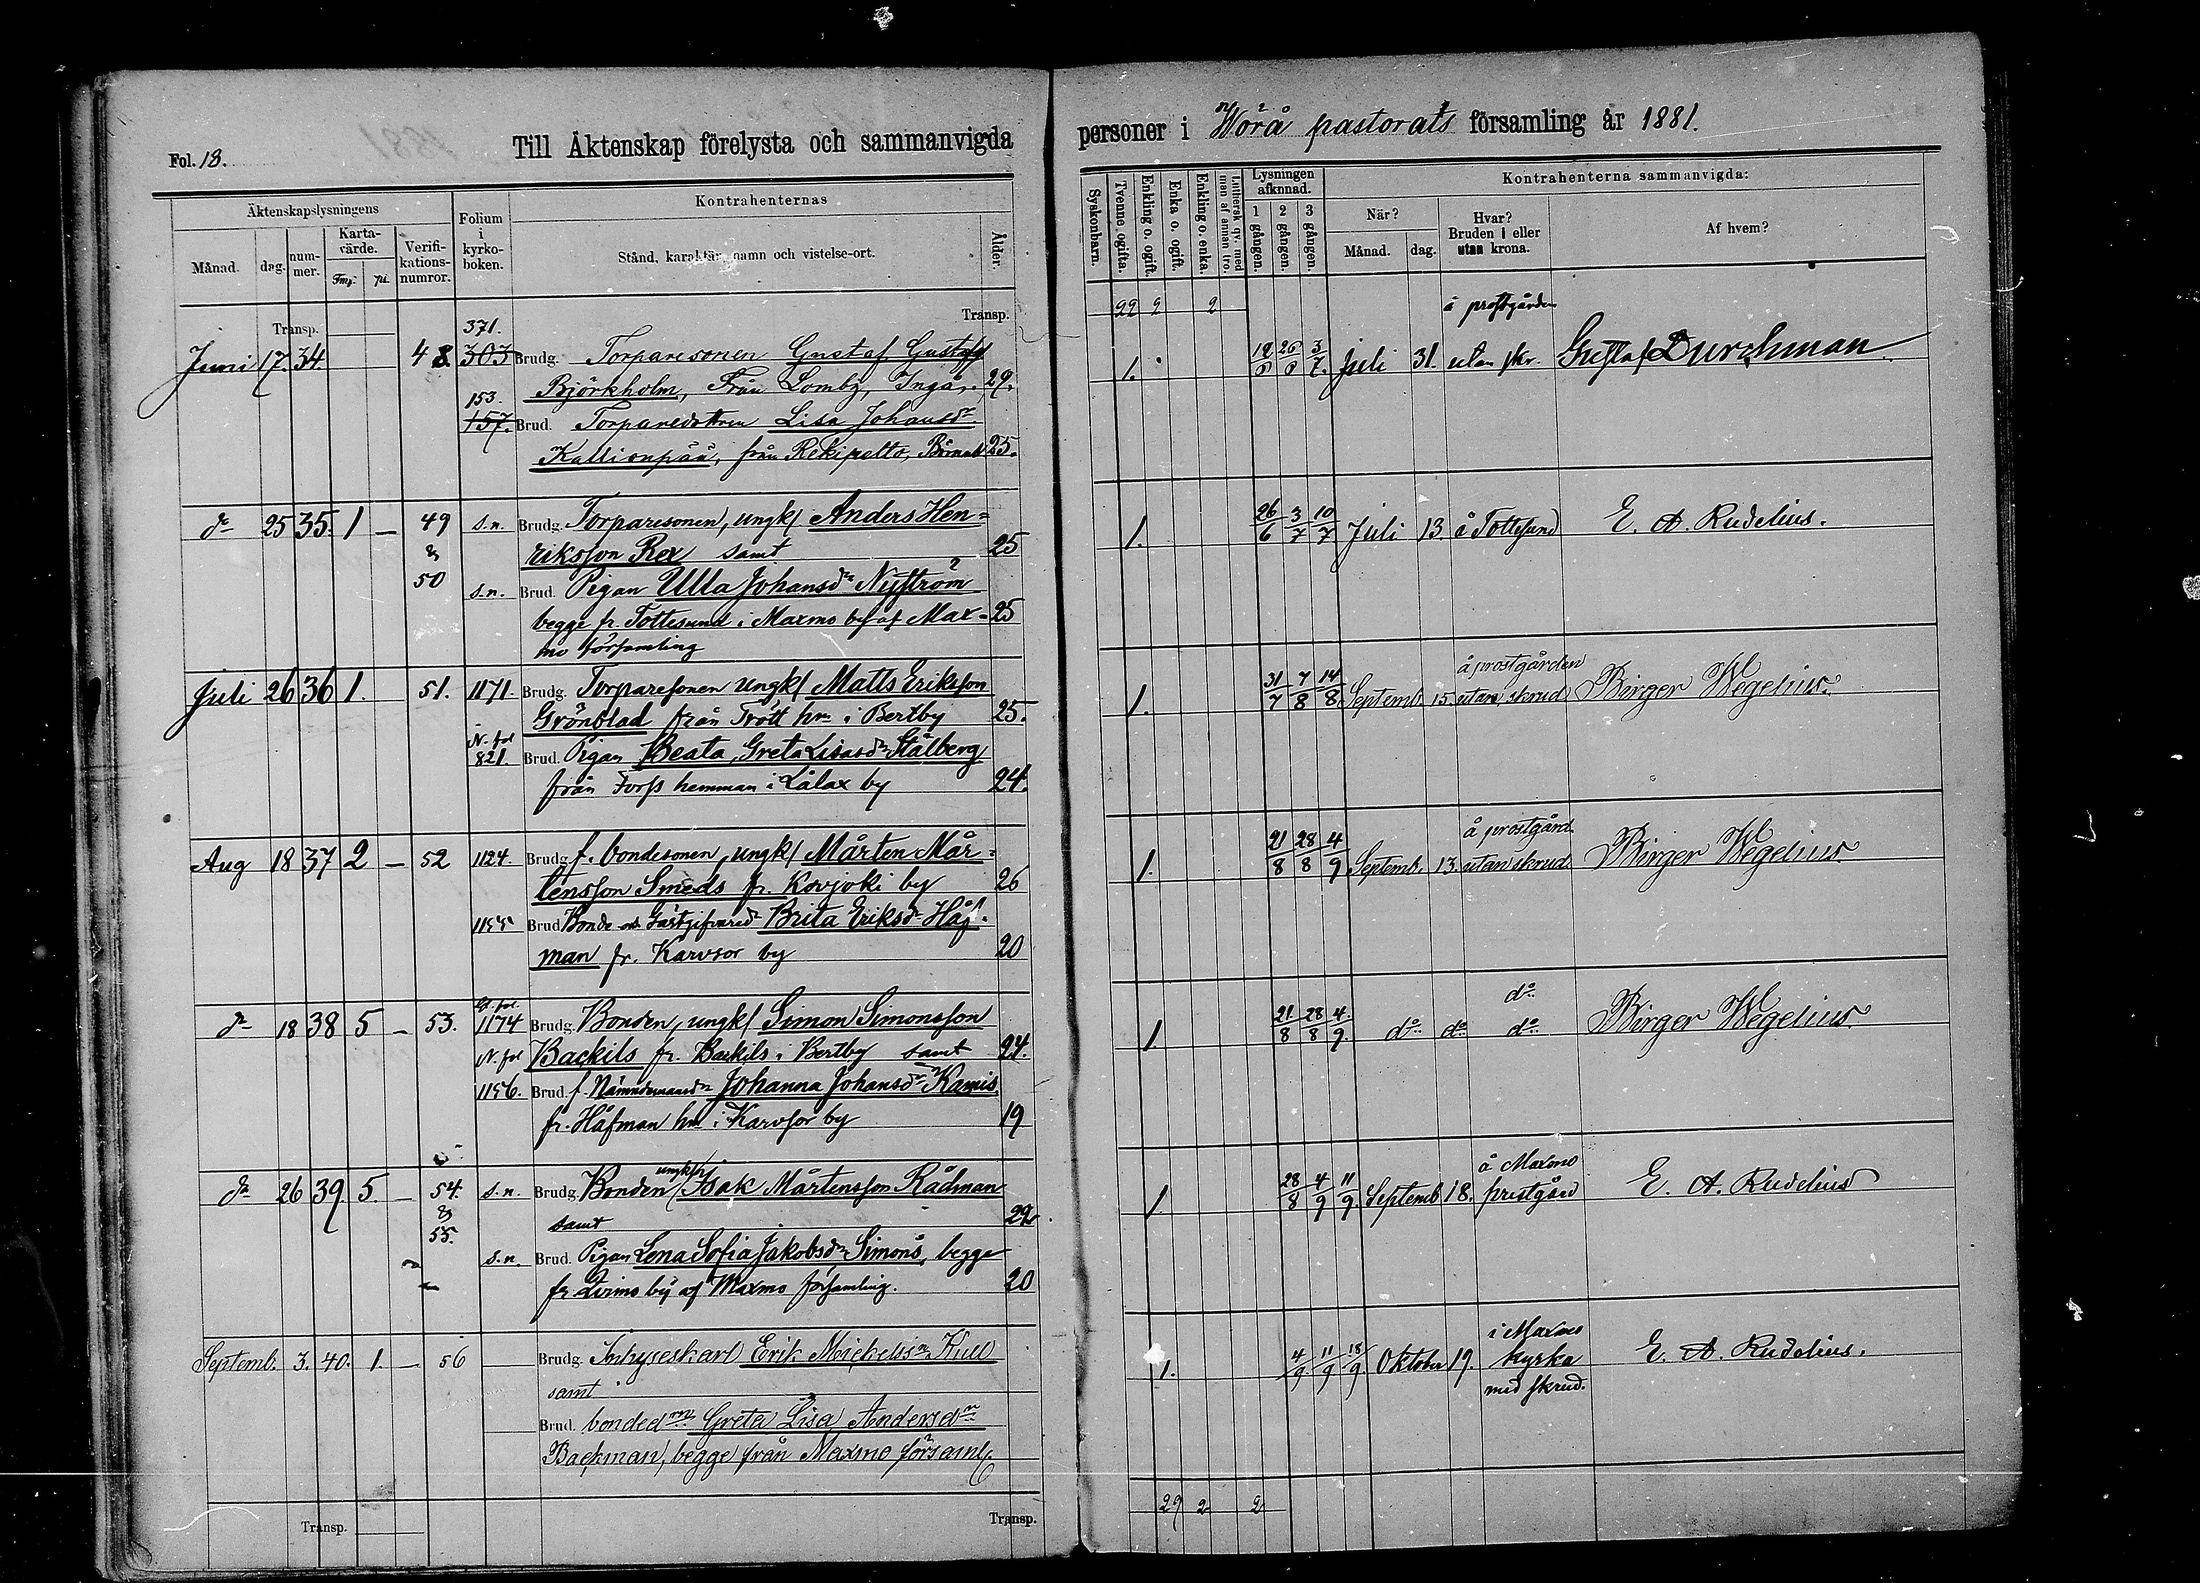 Fol. 13.
Till Äktenskap förelysta och sammanvigda
personer i Wörå pastorats församling år 1881.
Äktenskapslysningens
Månad. dag. num-mer. Karta-värde. Fmg. pi. Verifi-kations-numror.
Folium i kyrko-boken.
Kontrahenternas
Stånd, karaktär, namn och vistelse-ort.
Ålder.
Syskonbarn. Tvenne ogifta. Enkling o. ogift. Enka o. ogift. Enkling o. enka. Luthersk qv. med man af annan tro.
Lysningen afknnad.
1 gången. 2 gången. 3 gången.
Kontrahenterna sammanvigda:
När? Månad. dag.
Hvar? Bruden i eller utan krona.
Af hvem?
Transp. Transp. 22 2 2
Juni 17. 34. 48. 371. 303 Brudg. Torparesonen Gustaf Gustafs
Björkholm, Från Lomby, Ingå, 29.
153. 157. Brud. Torparedottren Lisa Johansdr
Kallionpää, från Rekipelto, 25.
1. 19/6 26/6 3/7. Juli 31. å prostgården utan skr. Gustaf Durchman
do 25 35. 1 – 49 & 50 s.n. Brudg. Torparesonen, ungk/ Anders Hen=
riksson Rex samt 25
s.n. Brud. Pigan Ulla Johansdr Nyström
begge fr. Tottesund i Maxmo by af Max- 25
mo församling
1. 26/6 3/7 10/7 Juli 13. å Tottesund E. A. Rudelius.
Juli 26 36 1. 51. 1171. Brudg. Torparesonen ungk/ Matts Eriksson
Grönblad från Trött hmn i Bertby 25.
N. fol 821. Brud. Pigan Beata Greta Lisasdr Stålberg
från Forss hemman i Lålax by 24.
1. 31/7 7/8 14/8. Septemb. 15. å prostgården utan skrud Birger Wegelius.
Aug 18 37 2 – 52 1124. Brudg. f. bondesonen, ungk/ Mårten Mår-
tensson Smeds fr. Kovjoki by 26
1155 Brud. Bonde och Gästgifvared Brita Eriksdr Håf-
man fr. Karvsor by 20
1. 21/8 28/8 4/9 Septemb. 13. å prostgård utan skrud Birger Wegelius
do 18 38 5 – 53. 1174 Brudg. Bonden, ungk/ Simon Simonsson
N. fol Backils fr. Backils i Bertby samt 24.
1156. Brud. f. Nämndemansdr Johanna Johansdr Kamis
fr. Håfman hm i Karvsor by 19
1. 21/8 28/8 4/9. do do do do Birger Wegelius
do 26 39 5. – 54. & 55. s.n. Brudg. Bonden ungk/ Isak Mårtensson Rådman
samt 22
s.n. Brud. Pigan Lena Sofia Jakobsdr Simons, begge
fr. Österö by af Maxmo församling. 20
1. 28/8 4/9 11/9. Septemb 18. å Maxmo prestgård E. A. Rudelius
Septemb. 3. 40. 1. – 56 Brudg. Inhyseskarl Erik Mickelssn Kull
samt
Brud. bonded Greta Lisa Andersdr
Backman, begge från Maxmo församl.
1. 4/9. 11/9 18/9. Oktober 19. i Maxmo kyrka med skrud. E. A. Rudelius.
Transp. Transp. 29 2 2